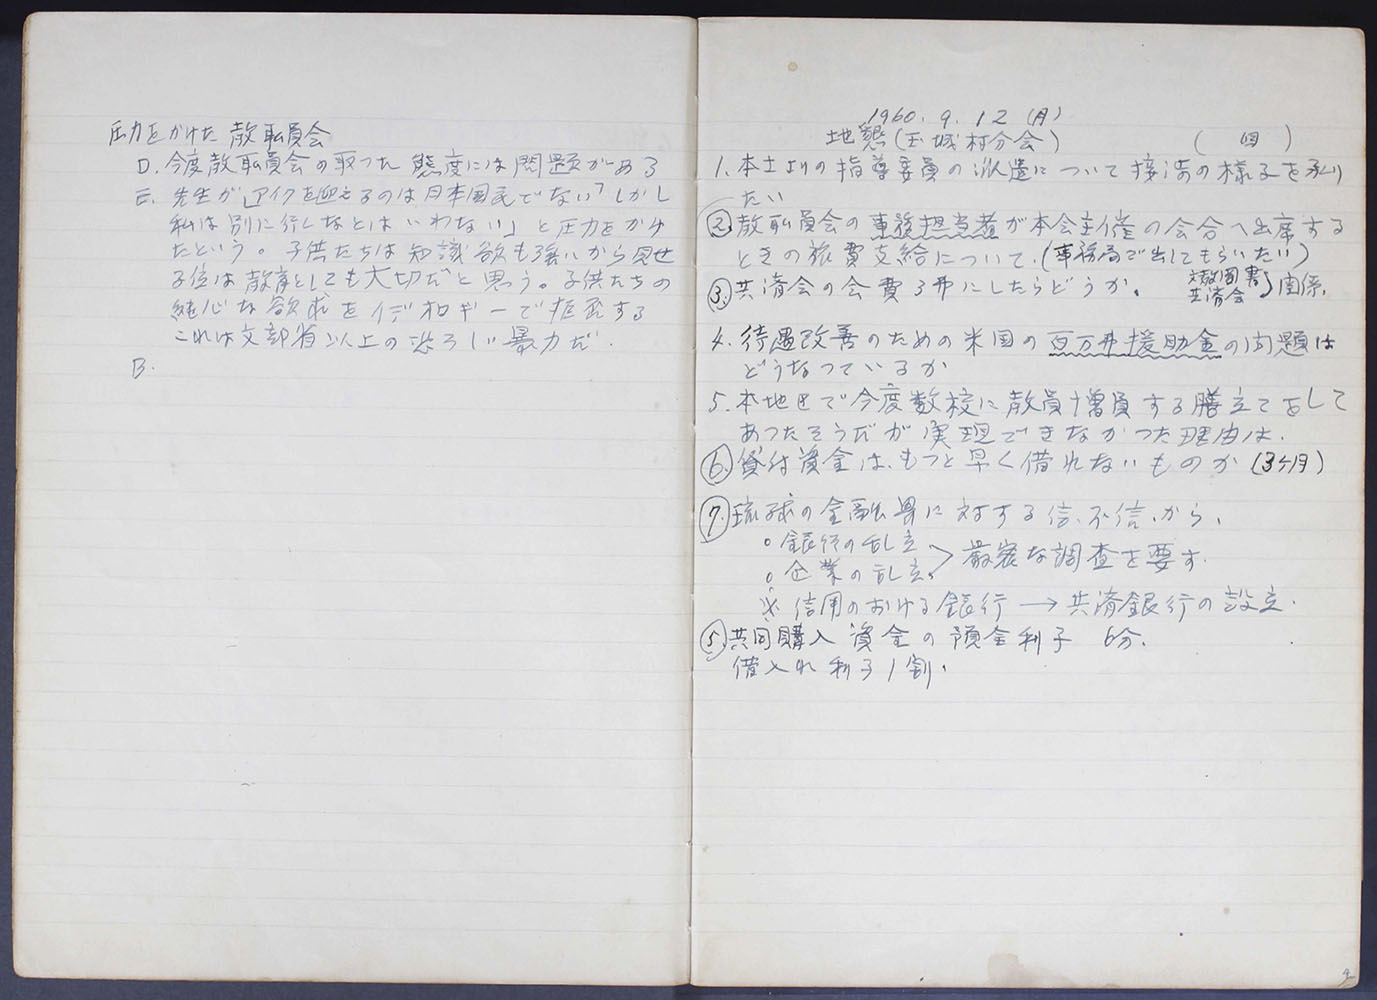 圧力をかけた教職員会
D. 今度教職員会の取つた態度には問題がある
E. 先生が「アイクを迎えるのは日本国民でない」しかし
私は別に行しなとはいわない」と圧力をかけ
たという。子供たちは知識欲も強いから見せ
る位は教育としても大切だと思う。子供たちの
純心な欲求をイデオロギーで拒否する
これは文部省以上の恐ろしい暴力だ.
B.
1960. 9. 12 (月)
地懇(玉城村分会) ( 回 )
1. 本土よりの指導委員の派遣について接渉の様子を承り
たい
② 教職員会の事務担当者が本会主催の会合へ出席する
ときの旅費支給について.(事務局で出してもらいたい)
③. 共済会の会費3弗にしたらどうか. 文教図書 共済会 関係.
4. 待遇改善のための米国の百万弗援助金の問題は
どうなつているか
5. 本地区で今度数校に教員増員する膳立てをして
あつたそうだが実現できなかつた理由は.
⑥ 貸付資金は、もつと早く借れないものか (3ヶ月)
⑦. 琉球の金融界に対する信、不信、から、
○ 銀行の乱立
○ 企業の乱立. > 厳密な調査を要す.
※ 信用のおける銀行 → 共済銀行の設立.
⑤. 共同購入資金の預金利子 6分.
借入れ利子1割.